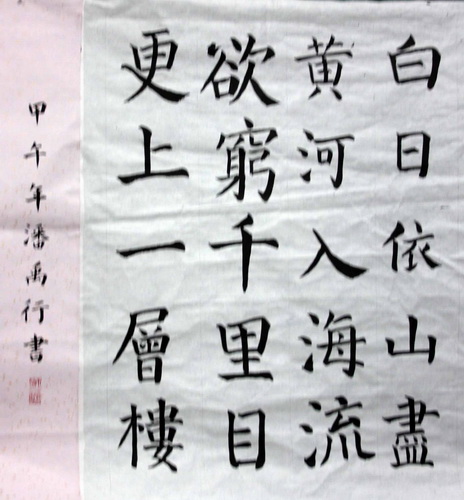 白日依山盡
黃河入海流
欲窮千里目
更上一層樓
甲午年潘禹行書